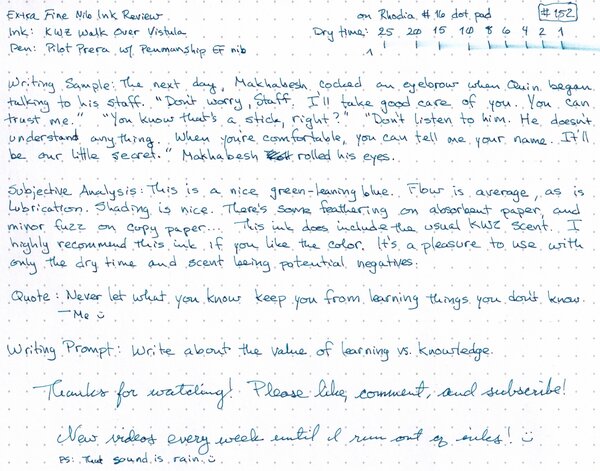 Extra Fine Nib Ink Review on Rhodia #16 dot pad #152
Ink: KWZ Walk Over Vistula Dry time: 25 20 15 10 8 6 4 2 1
Pen: Pilot Prera w/ Penmanship EF nib
Writing Sample: The next day, Makhabesh cocked an eyebrow when Quin began
talking to his staff. "Don't worry, Staff. I'll take good care of you. You can
trust me." "You know that's a stick, right?" "Don't listen to him. He doesn't
understand anything. When you're comfortable, you can tell me your name. It'll
be our little secret." Makhabesh rolled his eyes.
Subjective Analysis: This is a nice green-leaning blue. Flow is average, as is
lubrication. Shading is nice. There's some feathering on absorbent paper, and
minor fuzz on copy paper... This ink does include the usual KWZ scent. I
highly recommend this ink if you like the color. It's a pleasure to use with
only the dry time and scent being potential negatives.
Quote: Never let what you know keep you from learning things you don't know.
- Me :)
Writing Prompt: Write about the value of learning vs. knowledge.
Thanks for watching! Please like, comment, and subscribe!
New videos every week until I run out of inks! :)
PS: That sound is rain. :)